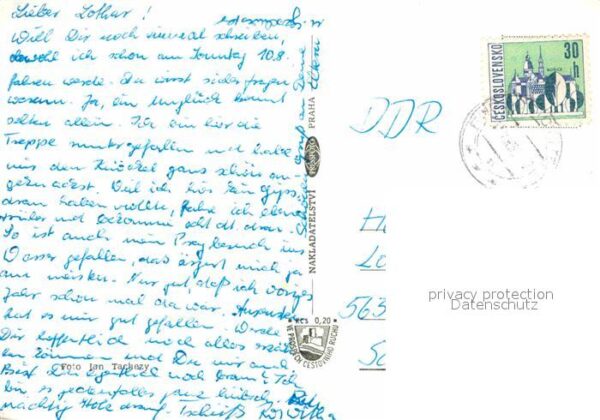 Lieber Lothar!
Will Dir noch einmal schreiben,
obwohl ich schon am Sonntag 10.8.
fahren werde. Du wirst sicher fragen
warum. Ja, ein Unglück kommt
selten allein. Ich bin hier die
Treppe runtergefallen und habe
mir den Knöchel ganz schön an-
geknackst. Weil ich hier kein Gips
dran haben wollte, fahre ich
wieder und bekomme dran.
So ist auch mein Pragbesuch ins
Wasser gefallen, das ärgert mich ja
am meisten. Nur gut, daß ich voriges
Jahr schon mal da war.
hat es mir gut gefallen. Werde
Dir hoffentlich noch alles
können und Du mir auch.
Bist Du eigentlich noch braun? Ich
bin es jedenfalls ganz
mächtig
Deine
Eltern
DDR
563
ČESKOSLOVENSKO
30 h
NAKLADATELSTVÍ
PRAHA
Kčs 0,20
VE PROSPĚCH CESTOVNÍHO RUCHU
Foto Jan Tachezy
privacy protection
Datenschutz